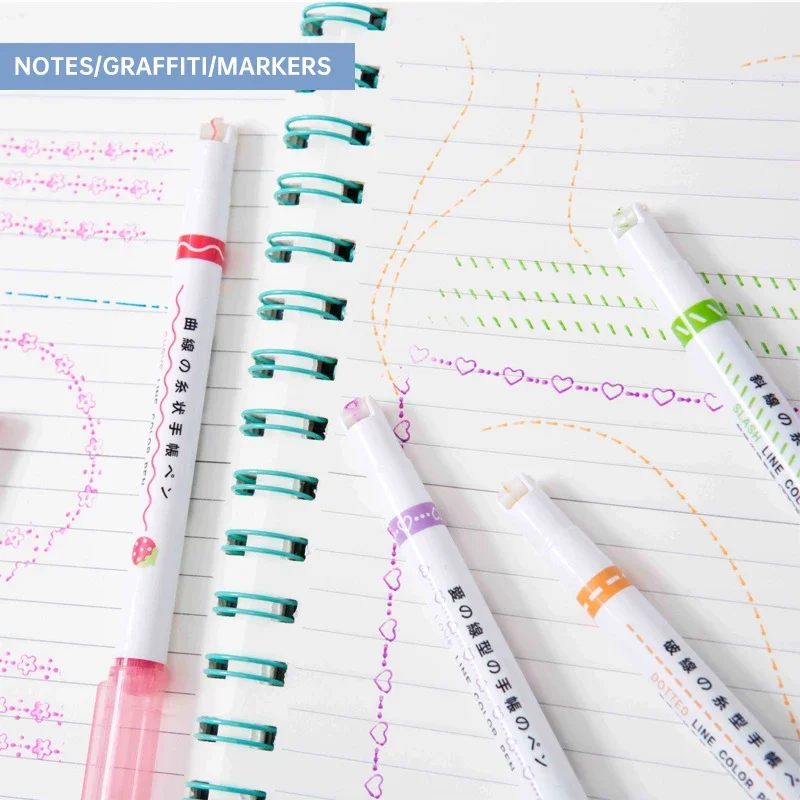 NOTES/GRAFFITI/MARKERS
曲線の糸状手帳ペン
LINE COLOR PEN
愛の線型の手帳のペン
LINE COLOR PEN
破線の糸型手帳ペ
DOTTED LINE COLOR P
斜線の糸
SLASH LINE COLO